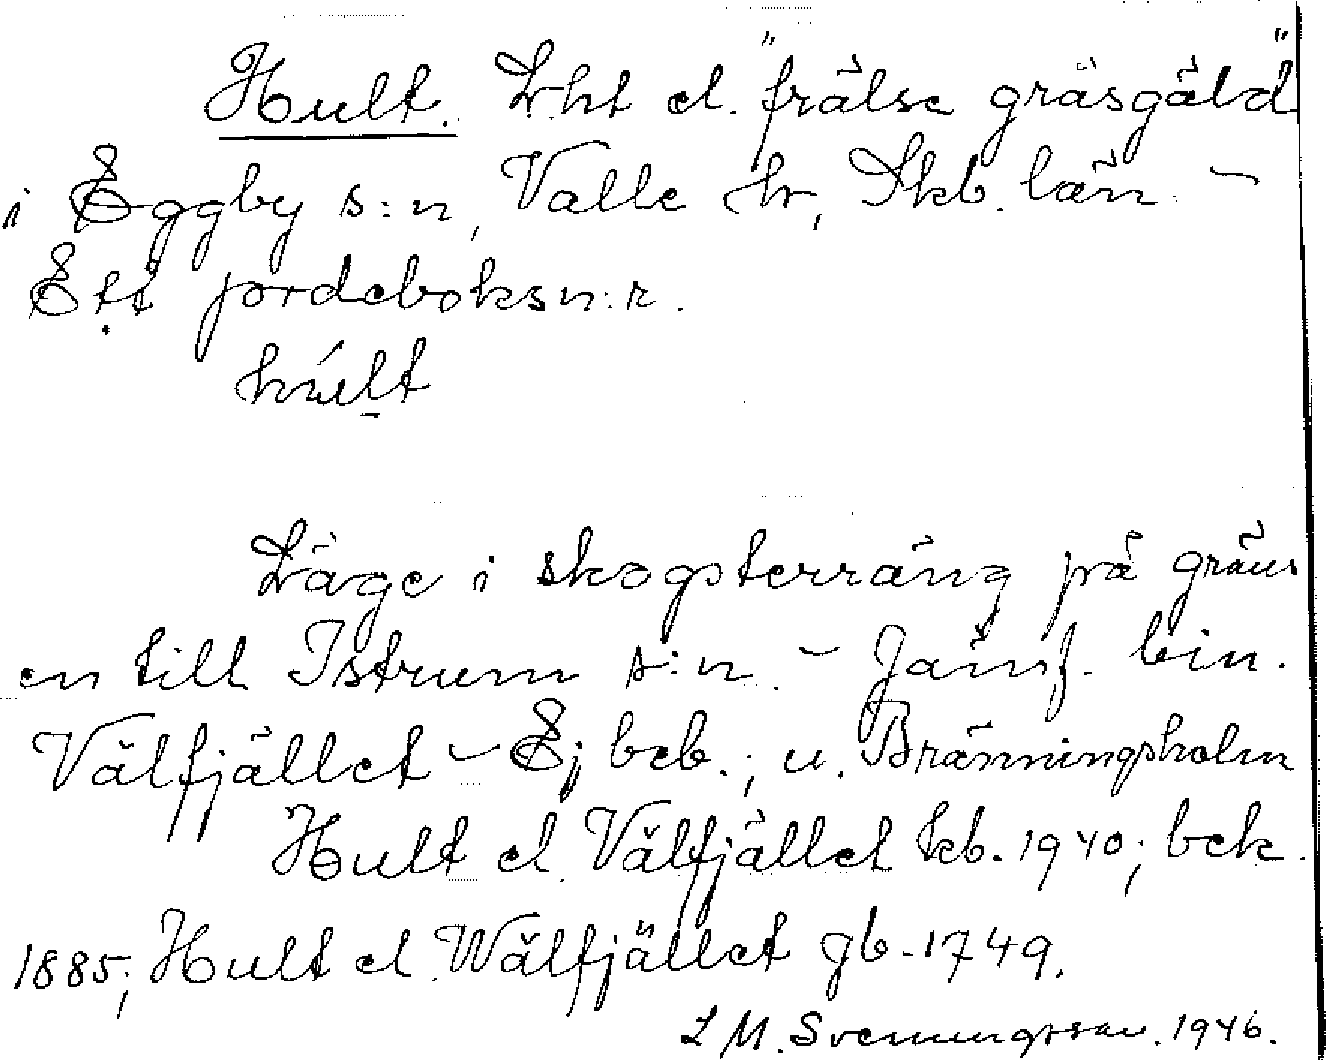 Hult. Lht el. "frälse gräsgäld"
i Eggby s:n, Valle hr, Skb. län. -
Ett jordeboksn:r.
húlt
Läge i skogsterräng på gräns
en till Istrum s:n. - Jämf. bin.
Välfjället - Ej beb.; u. Bränningsholm
Hult el. Välfjället kb. 1940; bek.
1885; Hult el. Wälfjället gb. 1749.
L M. Svenningsson. 1946.